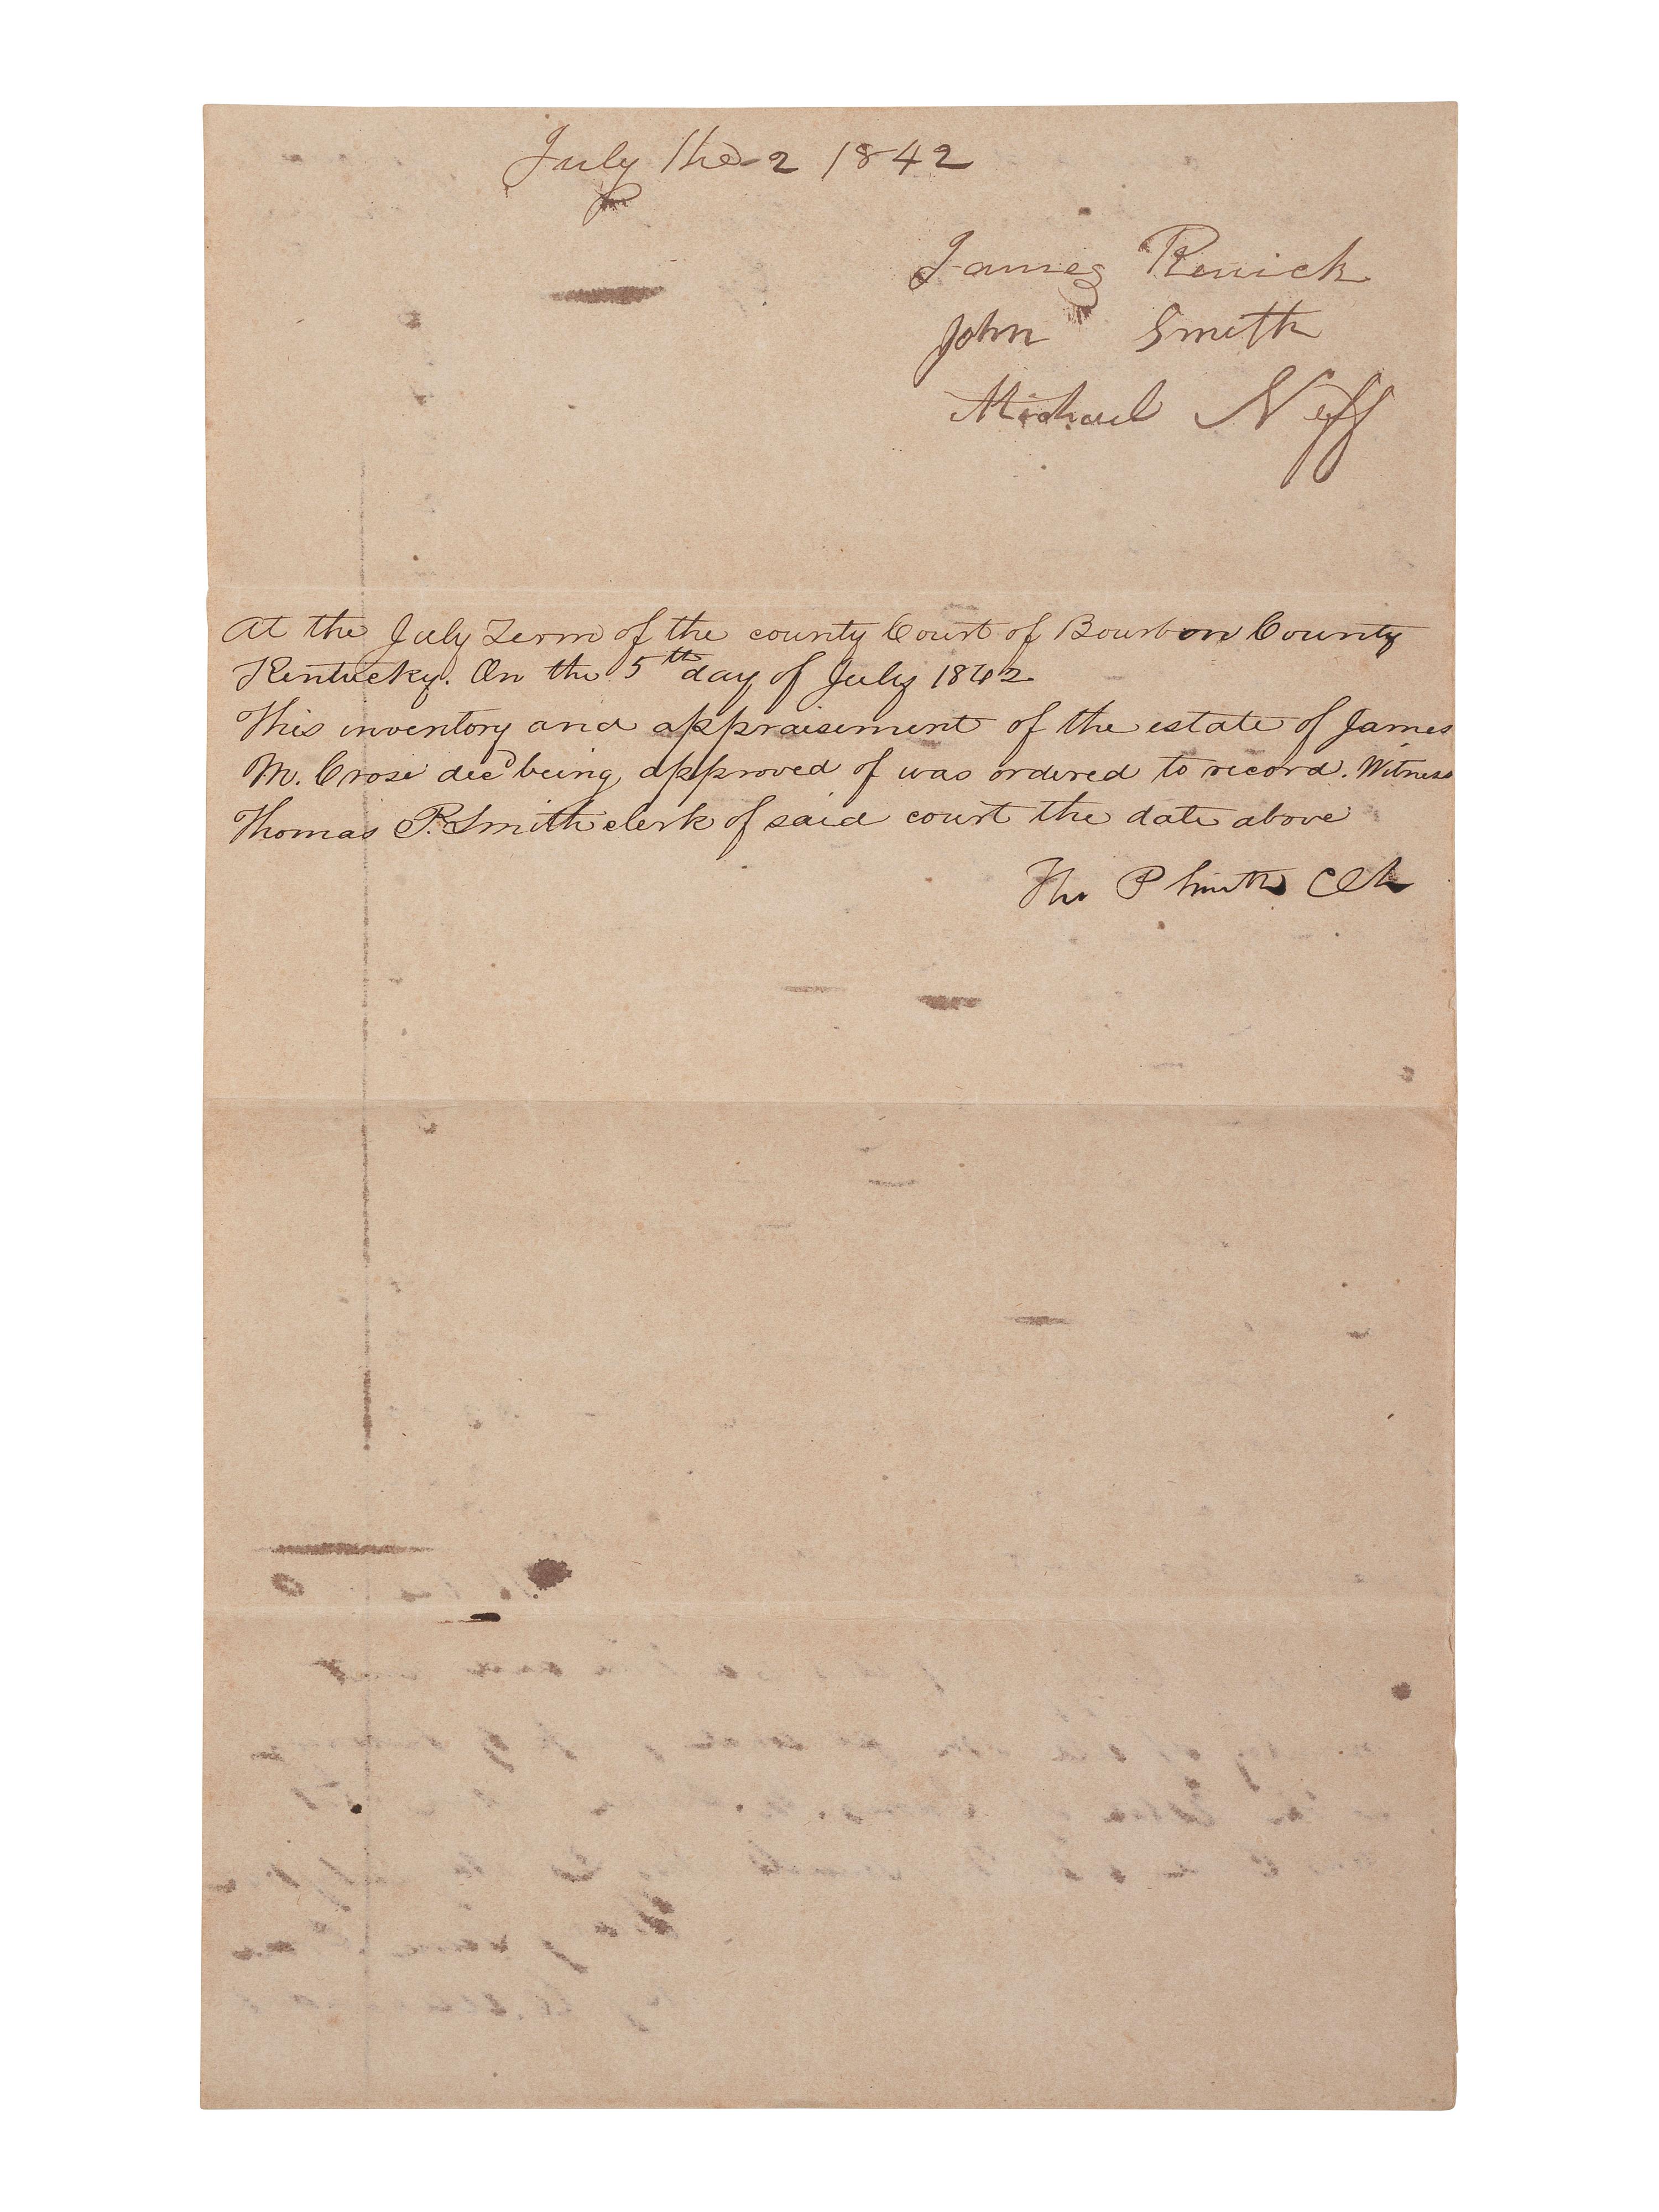 July the 2 1842
James Renick
John Smith
Michael Neff
At the July Term of the county Court of Bourbon County
Kentucky. On the 5th day of July 1842
This inventory and appraisement of the estate of James
M. Crose decd being approved of was ordered to record. Witness
Thomas P. Smith clerk of said court the date above
Tho P Smith Clk